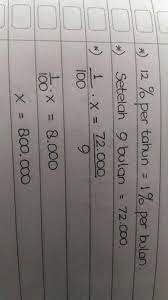 *) 12 % per tahun = 1% per bulan.
*) Setelah 9 bulan = 72.000
*) 1/100 . x = 72.000/9
1/100 . x = 8.000
x = 800.000